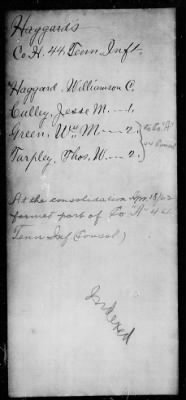 Haggard's
Co. H. 44. Tenn Inft.
Haggard, Williamson C.
Culley, Jesse M. — 1.
Green, Wm M. — 2.
to Co "A"
Consol
Tarpley, Thos. W — 2.
At the consolidation Apr. 18/62
formed part of Co "A" 44
Tenn Inf (Consol)
Indexed